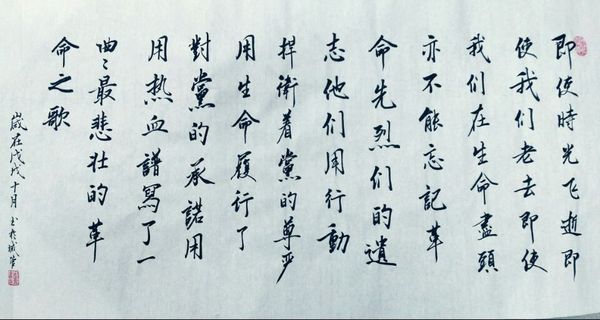 即使時光飞逝即
使我们老去即使
我们在生命盡頭
亦不能忘記革
命先烈们的遺
志他们用行動
捍衛着黨的尊严
用生命履行了
對黨的承諾用
用热血譜寫了一
曲〻最悲壮的革
命之歌
歲在戊戌十月